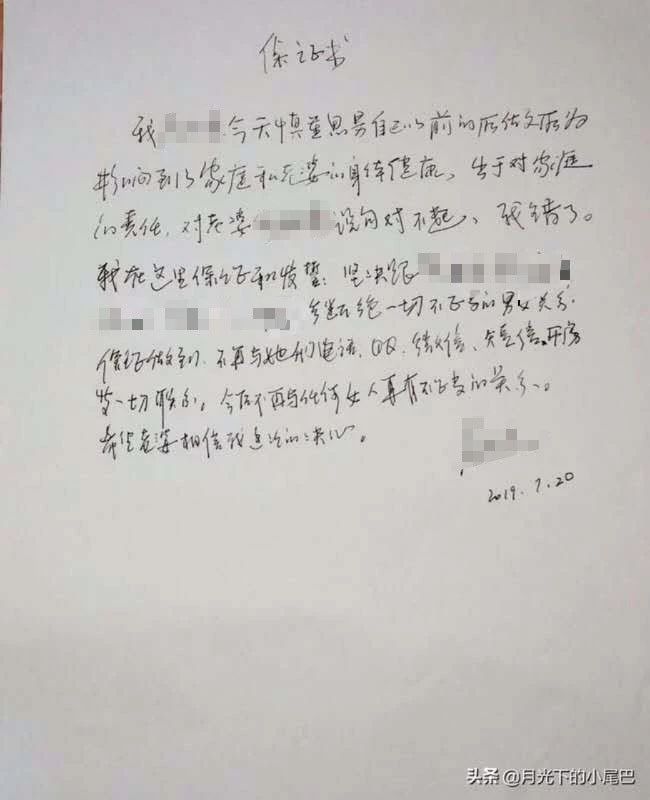 保证书
我 今天慎重思量自己以前的所做又所为
影响到了家庭和老婆的身体健康、出于对家庭
的责任,对老婆 说句对不起、我错了。
我在这里保证和发誓:坚决跟
断绝一切不正当的男女关系.
保证做到:不再与她们电话、QQ、微信、短信、开房
等一切联系。今后不再与任何女人再有不正当的关系、
希望老婆相信我这次的决心。
2019.7.20
头条 @月光下的小尾巴